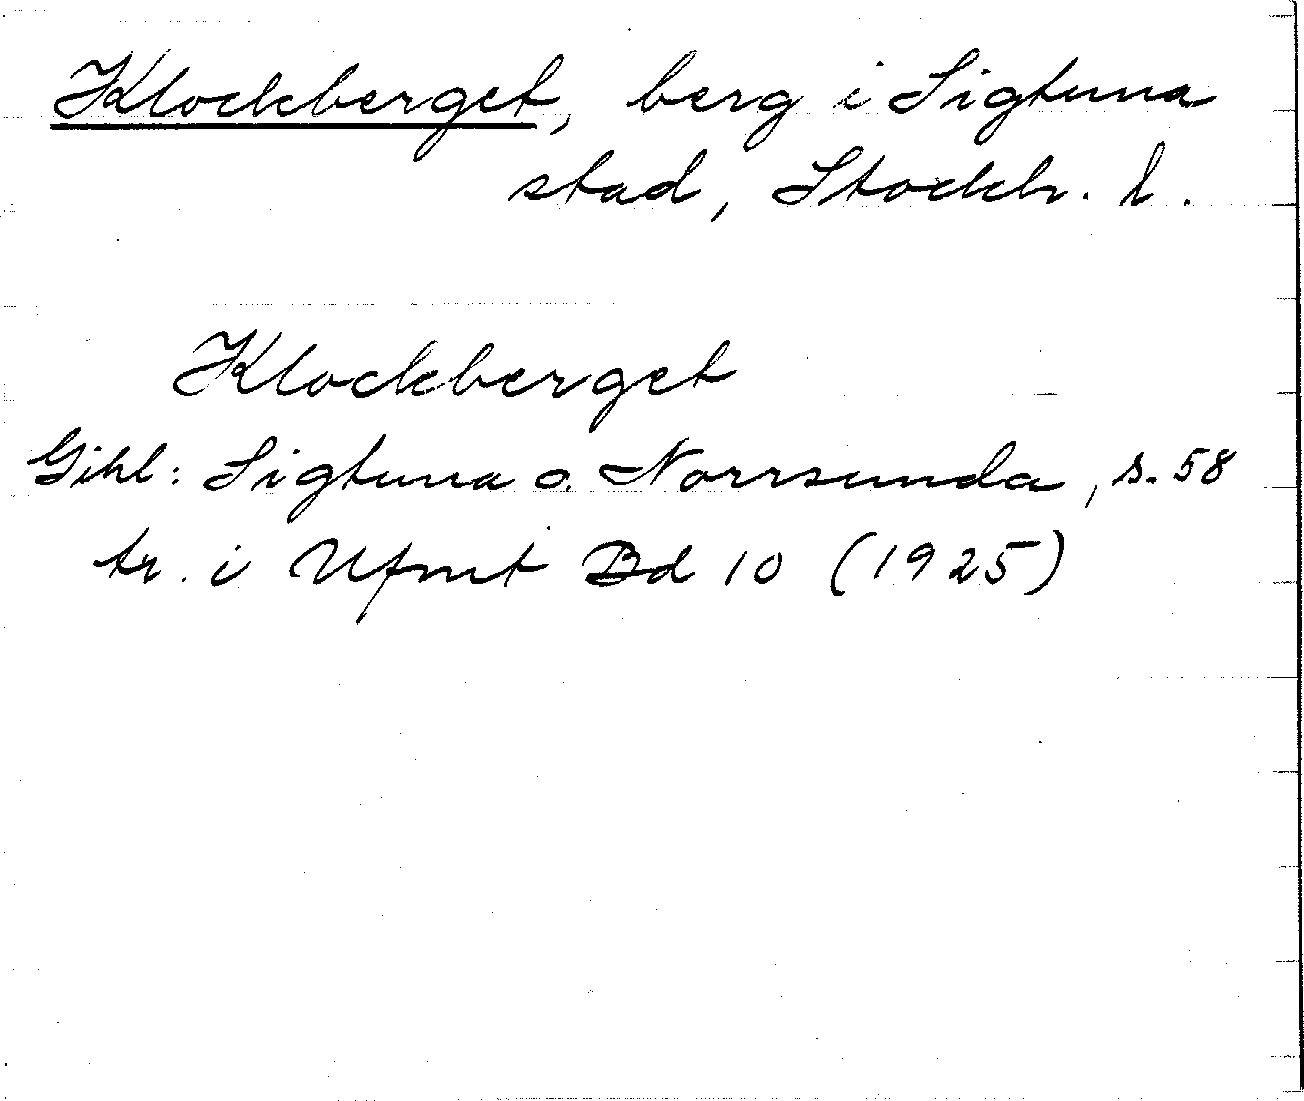 Klockberget, berg i Sigtuna
stad, Stockh. l.
Klockberget
Gihl: Sigtuna o. Norrsunda, s. 58
tr. i Ufmt Bd 10 (1925)